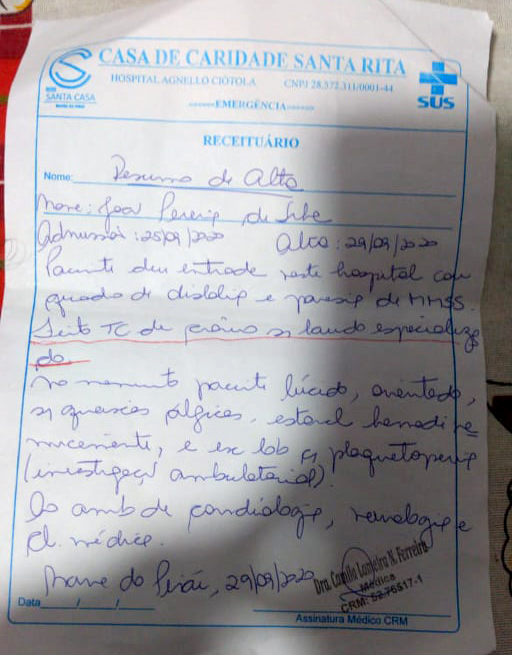 CASA DE CARIDADE SANTA RITA
HOSPITAL AGNELLO CIOTOLA CNPJ 28.572.311/0001-44
SANTA CASA
EMERGÊNCIA
SUS
RECEITUÁRIO
Nome: Resumo de Alta
Nome: Pereira de
Admissão: 25/09/2020 Alta: 29/09/2020
Paciente deu entrada neste hospital com
quadro de dislalia e paresia de MMSS.
Feito TC de crânio s/ laudo especializa
do.
No momento paciente lúcido, orientado,
s/ queixas álgicas, estável hemodi
namicamente, e ex lab c/ plaquetopenia
(investigação ambulatorial).
Ao amb de cardiologia, neurologia e
cl. médica.
Barra do Piraí, 29/09/2020
Dra. Camilla N. Ferreira
Médica
CRM: 52.76517-1
Data / /
Assinatura Médico CRM